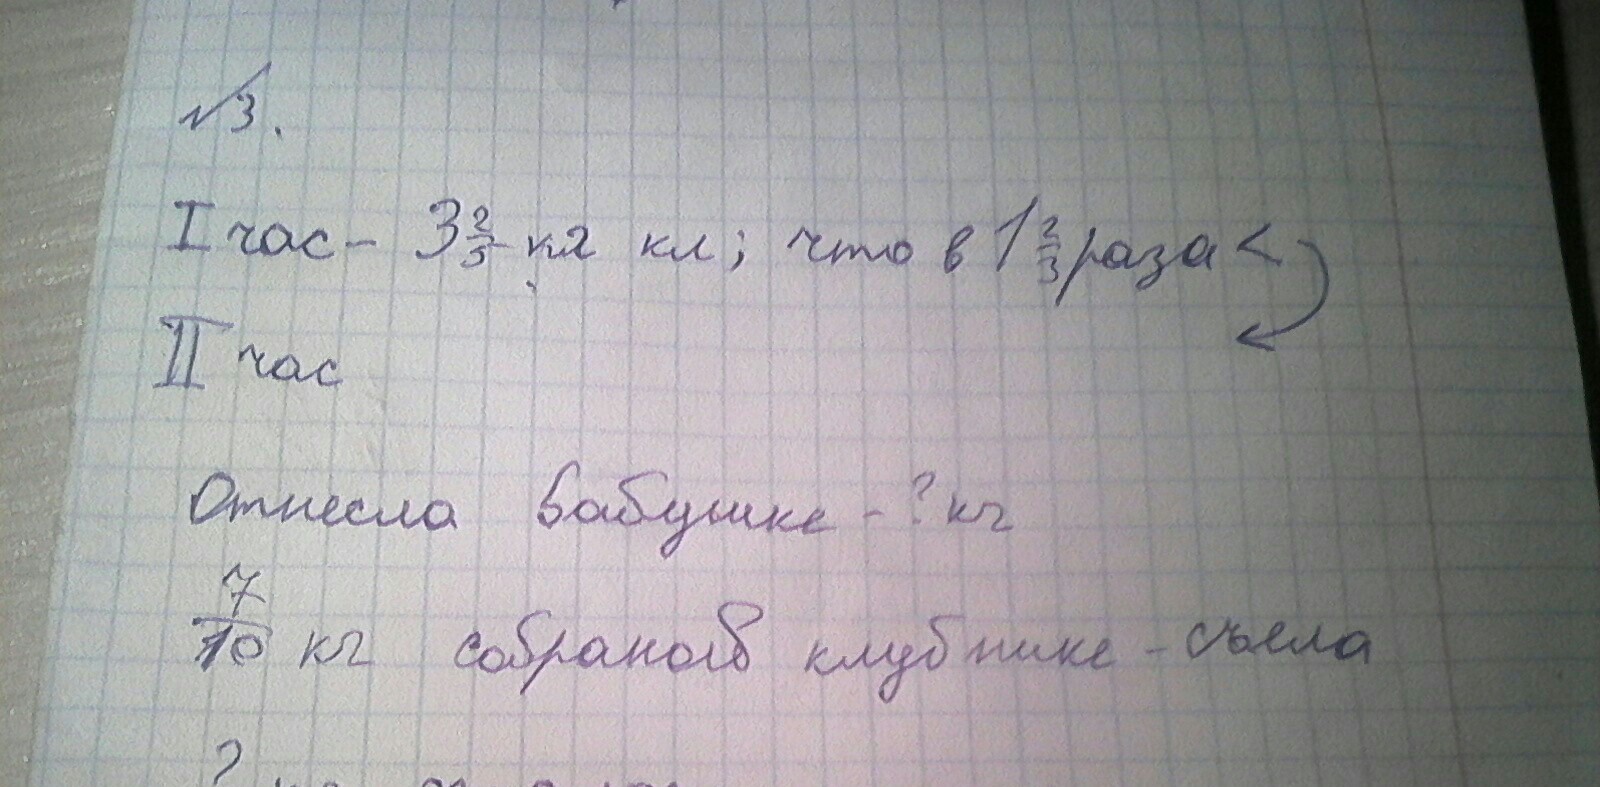 №3.
I час - 3 2/5 кл; что в 1 2/3 раза <
II час
Отнесла бабушке - ? кг
7/10 кг собраной клубнике - съела
?